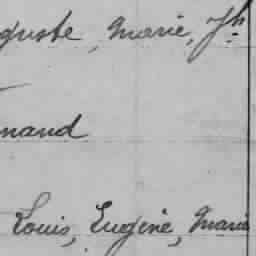 guste, Marie, Jh
nand
Louis, Eugène, Marie